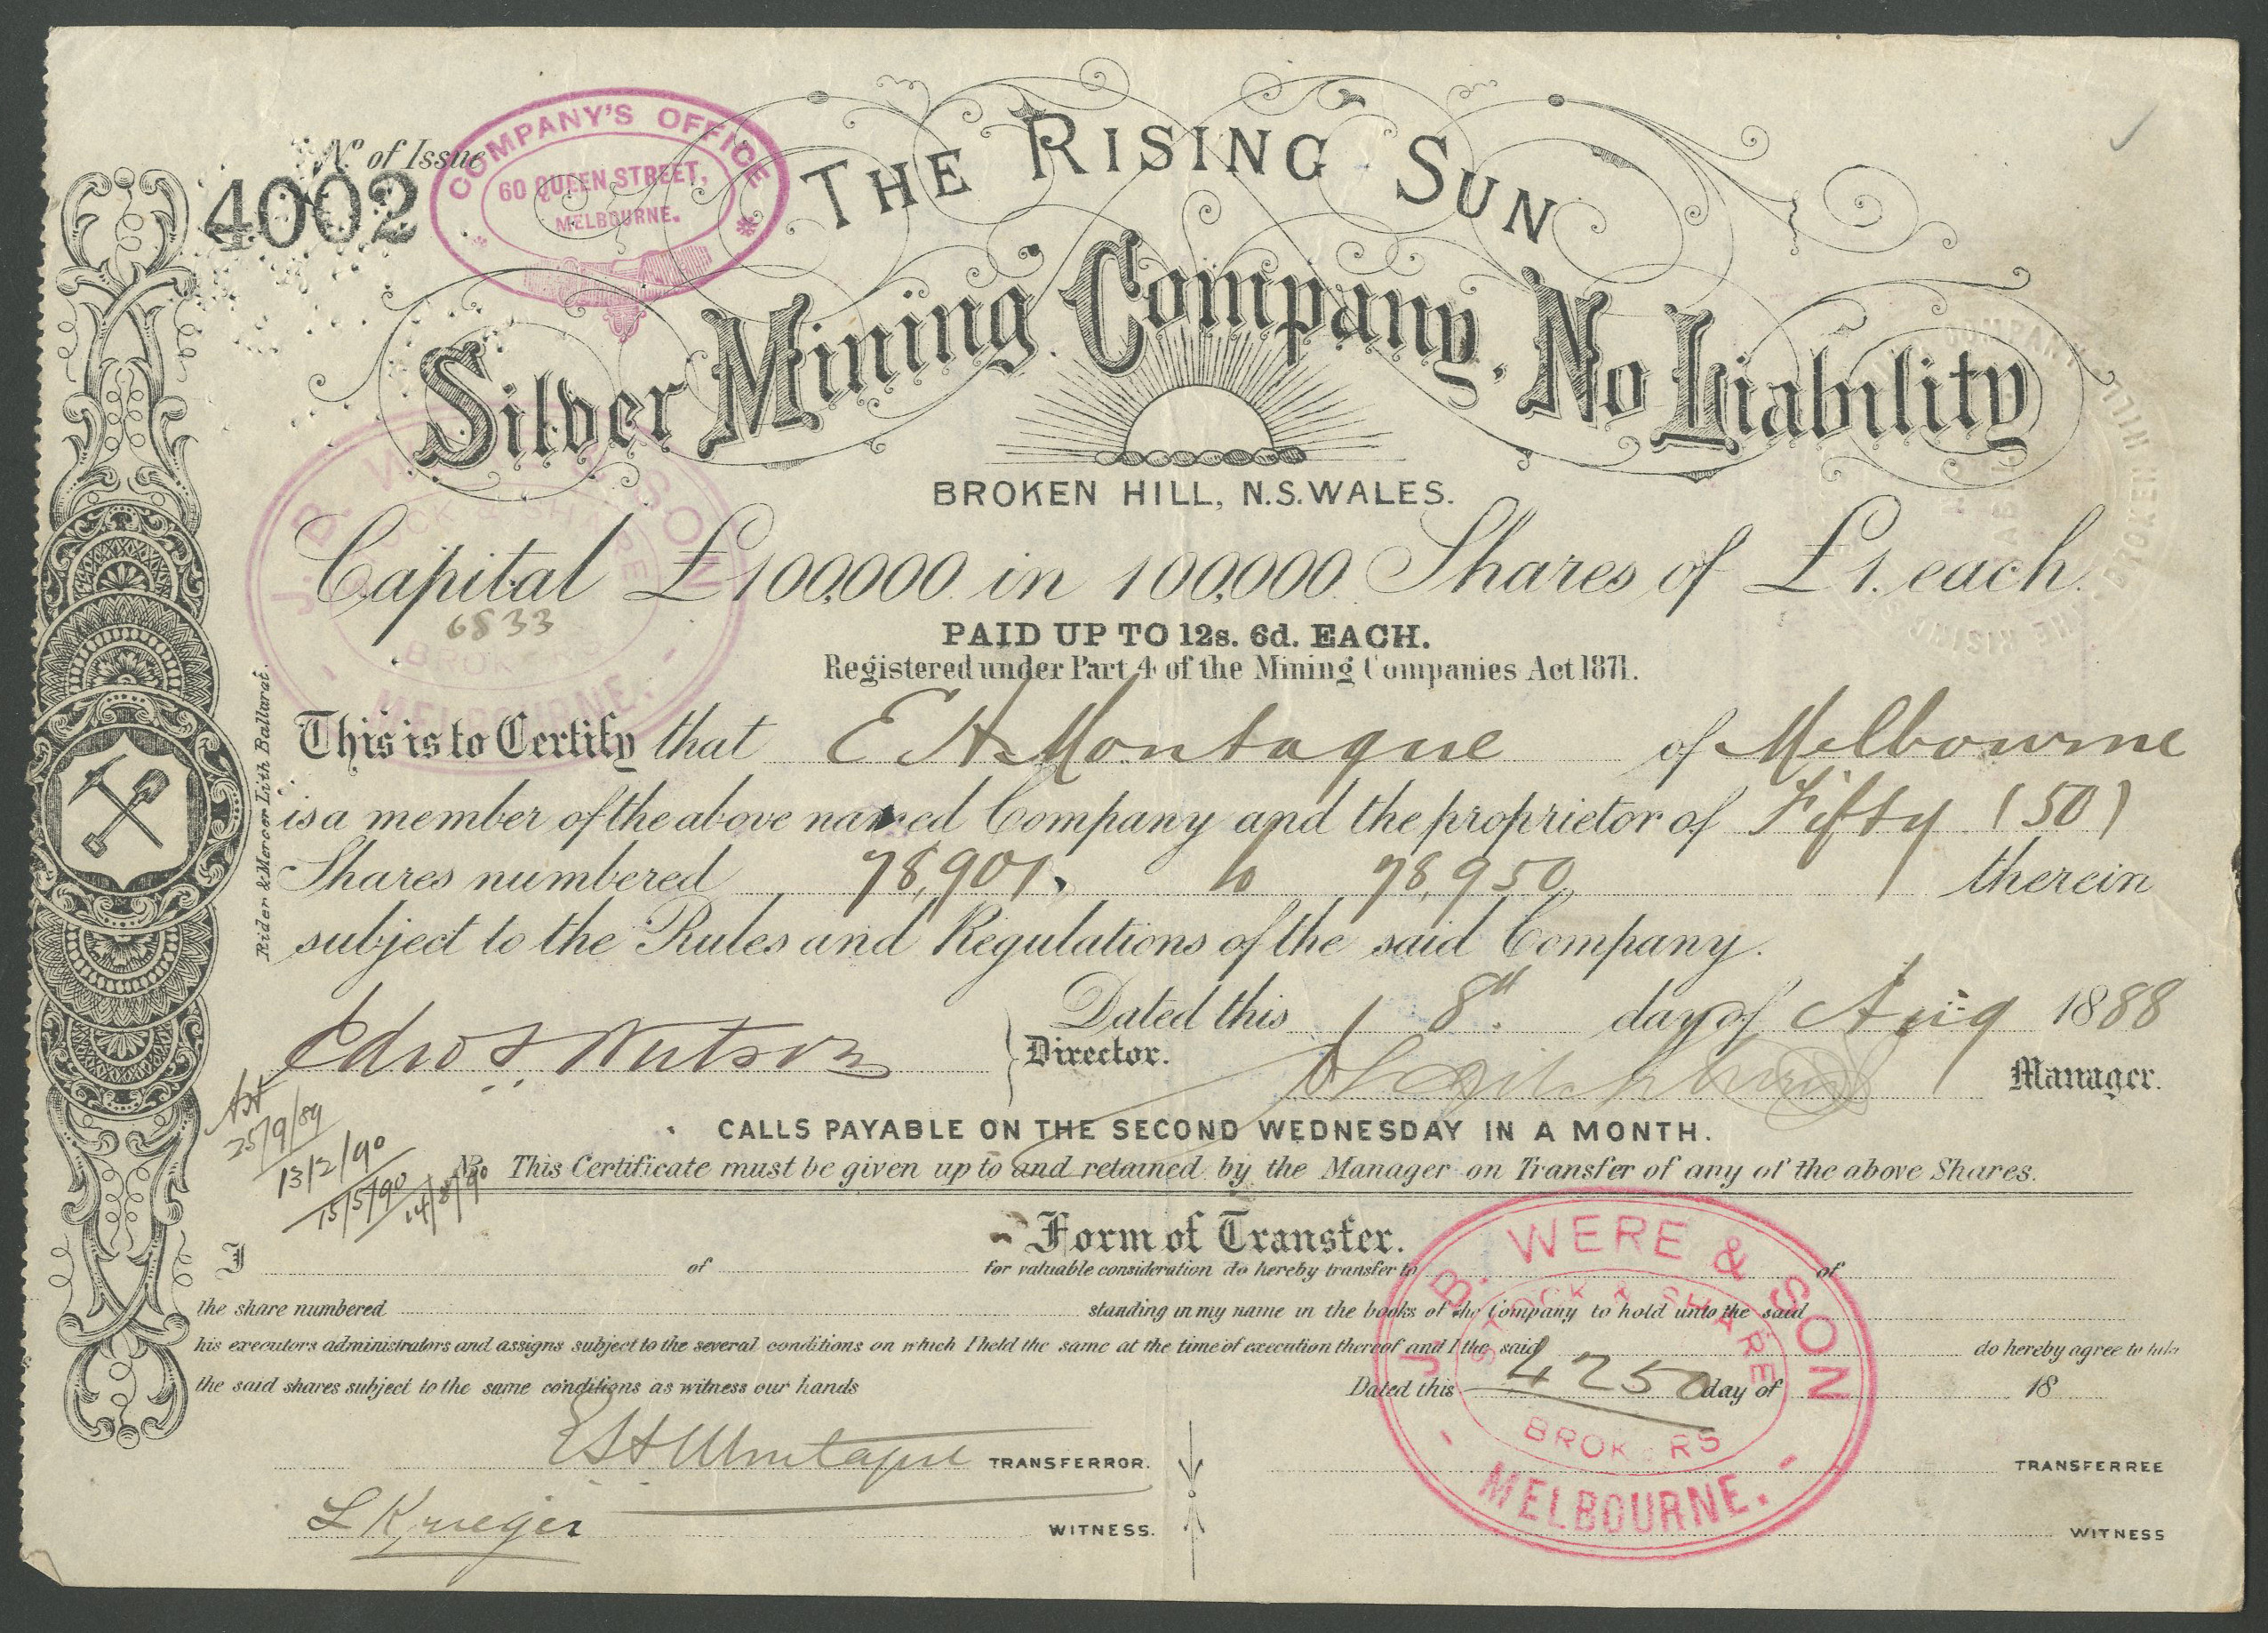 No. of Issue
4002
COMPANY'S OFFICE
60 QUEEN STREET,
MELBOURNE.
THE RISING SUN
Silver Mining Company, No Liability
BROKEN HILL, N.S.WALES.
J. B. WERE & SON
STOCK & SHARE
BROKERS
MELBOURNE.
Capital £100,000 in 100,000 Shares of £1. each.
6833
PAID UP TO 12s. 6d. EACH.
Registered under Part 4 of the Mining Companies Act 1871.
Rider & Mercer Lith Ballarat.
This is to Certify that E H Montague of Melbourne
is a member of the above named Company and the proprietor of Fifty (50)
Shares numbered 78,901 to 78,950 therein
subject to the Rules and Regulations of the said Company.
Dated this 8th day of Aug 1888
Director.
Manager.
25/9/89
13/2/90
15/5/90
14/8/90
CALLS PAYABLE ON THE SECOND WEDNESDAY IN A MONTH.
NB. This Certificate must be given up to and retained by the Manager on Transfer of any of the above Shares.
Form of Transfer.
I of for valuable consideration do hereby transfer to of
the share numbered standing in my name in the books of the Company to hold unto the said
his executors administrators and assigns subject to the several conditions on which I held the same at the time of execution thereof and I the said do hereby agree to take
the said shares subject to the same conditions as witness our hands Dated this 4250 day of 18
J. B. WERE & SON
STOCK & SHARE
BROKERS
MELBOURNE.
E H Montague TRANSFERROR. TRANSFERREE
L Krueger WITNESS. WITNESS